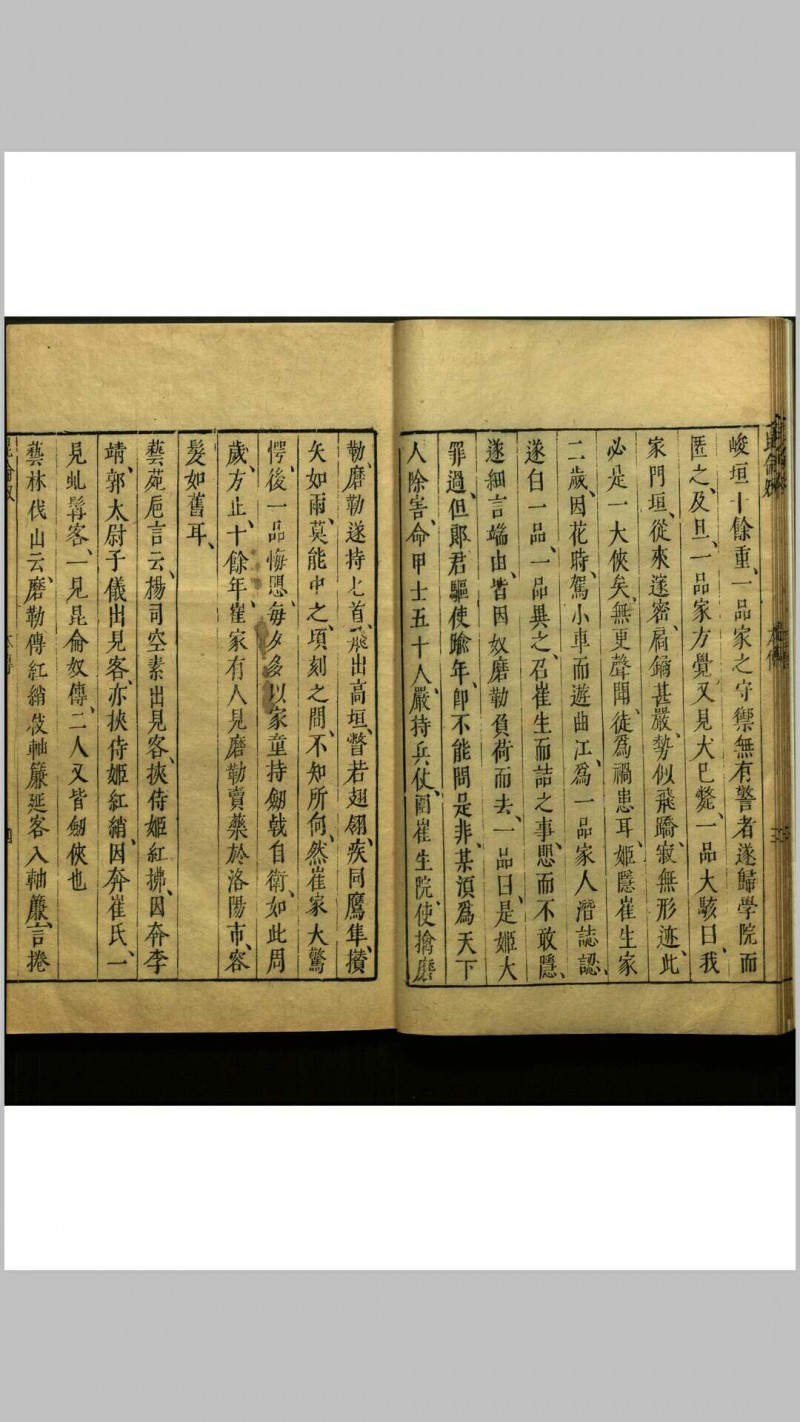 峻垣十餘重、一品家之守禦無有警者遂歸學院而
匿之、及旦、一品家方覺又見犬已斃、一品大駭曰、我
家門垣、從來邃密、扃鐍甚嚴、勢似飛蹻、寂無形迹、此
必是一大俠矣、無更聲聞、徒爲禍患耳、姬隱崔生家
二歲、因花時、駕小車而遊曲江、爲一品家人潛誌認、
遂白一品、一品異之、召崔生而詰之事、思而不敢隱、
遂細言端由、皆因奴磨勒負荷而去、一品曰、是姬大
罪過、但郞君驅使踰年、卽不能問是非、某須爲天下
人除害、命甲士五十人、嚴持兵仗、圍崔生院、使擒磨
勒、磨勒遂持匕首、飛出高垣、瞥若翅翎、疾同鷹隼、攢
矢如雨、莫能中之、頃刻之間、不知所向、然崔家大驚
愕、後一品悔恐、每夕多以家童持劒戟自衛、如此周
歲、方止、十餘年、崔家有人見磨勒賣藥於洛陽市、容
髮如舊耳、
藝苑巵言云、楊司空素出見客、挾侍姬紅拂、因奔李
靖、郭太尉子儀出見客、亦挾侍姬紅綃、因奔崔氏、一
見虬髯客、一見昆侖奴傳、二人又皆劒俠也
藝林伐山云、磨勒傳紅綃妓軸簾延客入軸簾、言捲